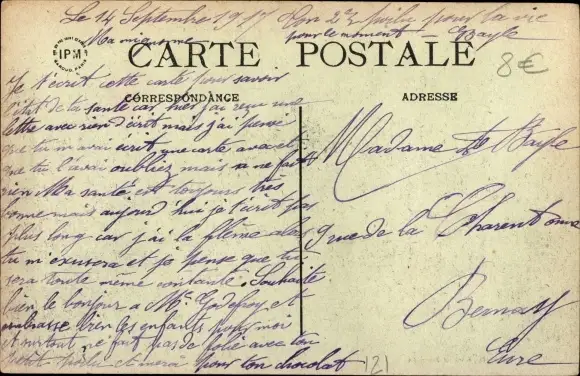 Le 14 Septembre 1917 Ton 23 poilu pour la vie
pour le moment Bayle
Ma mignonne
IPM
CARTE POSTALE
8€
CORRESPONDANCE
ADRESSE
Je t'écrit cette carte pour savoir
l'état de ta santé car hier j'ai reçu une
lettre avec rien d'écrit mais j'ai pensé
que tu m'avai écrit que carte avac et
que tu l'avai oubliez mais sa ne fait
rien Ma santé est toujours très
bonne mais aujourd'hui je t'écrit pas
plus long car j'ai la flème alors
tu m'exusera et je pense que tu
sera toute même contante. Souhaite
bien le bonjour a Mr Godefroy et
embrasse bien les enfants pour moi
et surtout ne fait pas de folie avec ton
petit poilu et merci pour ton chocolat
Madame Bayle
9 rue de la Charentonne
Bernay
Eure
121